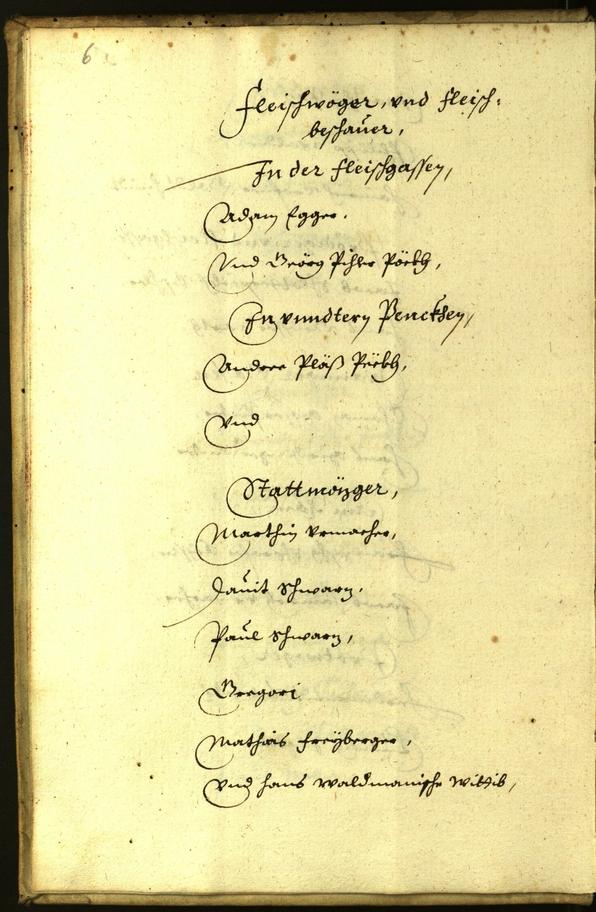 6
Fleischwöger, vnd Fleisch-
beschauer,
In der Fleischgassen,
Adam Egger.
Vnd Geörg Pihler Pöckh,
En vnndtern Penckhen,
Andree Plåß Pöckh,
Vnd
Stattmözger,
Marthin Vrmacher,
Dauit Schwarz,
Paul Schwarz,
Gregori
Mathais Freyberger,
Vnd Hans Waldmanische Wittib,